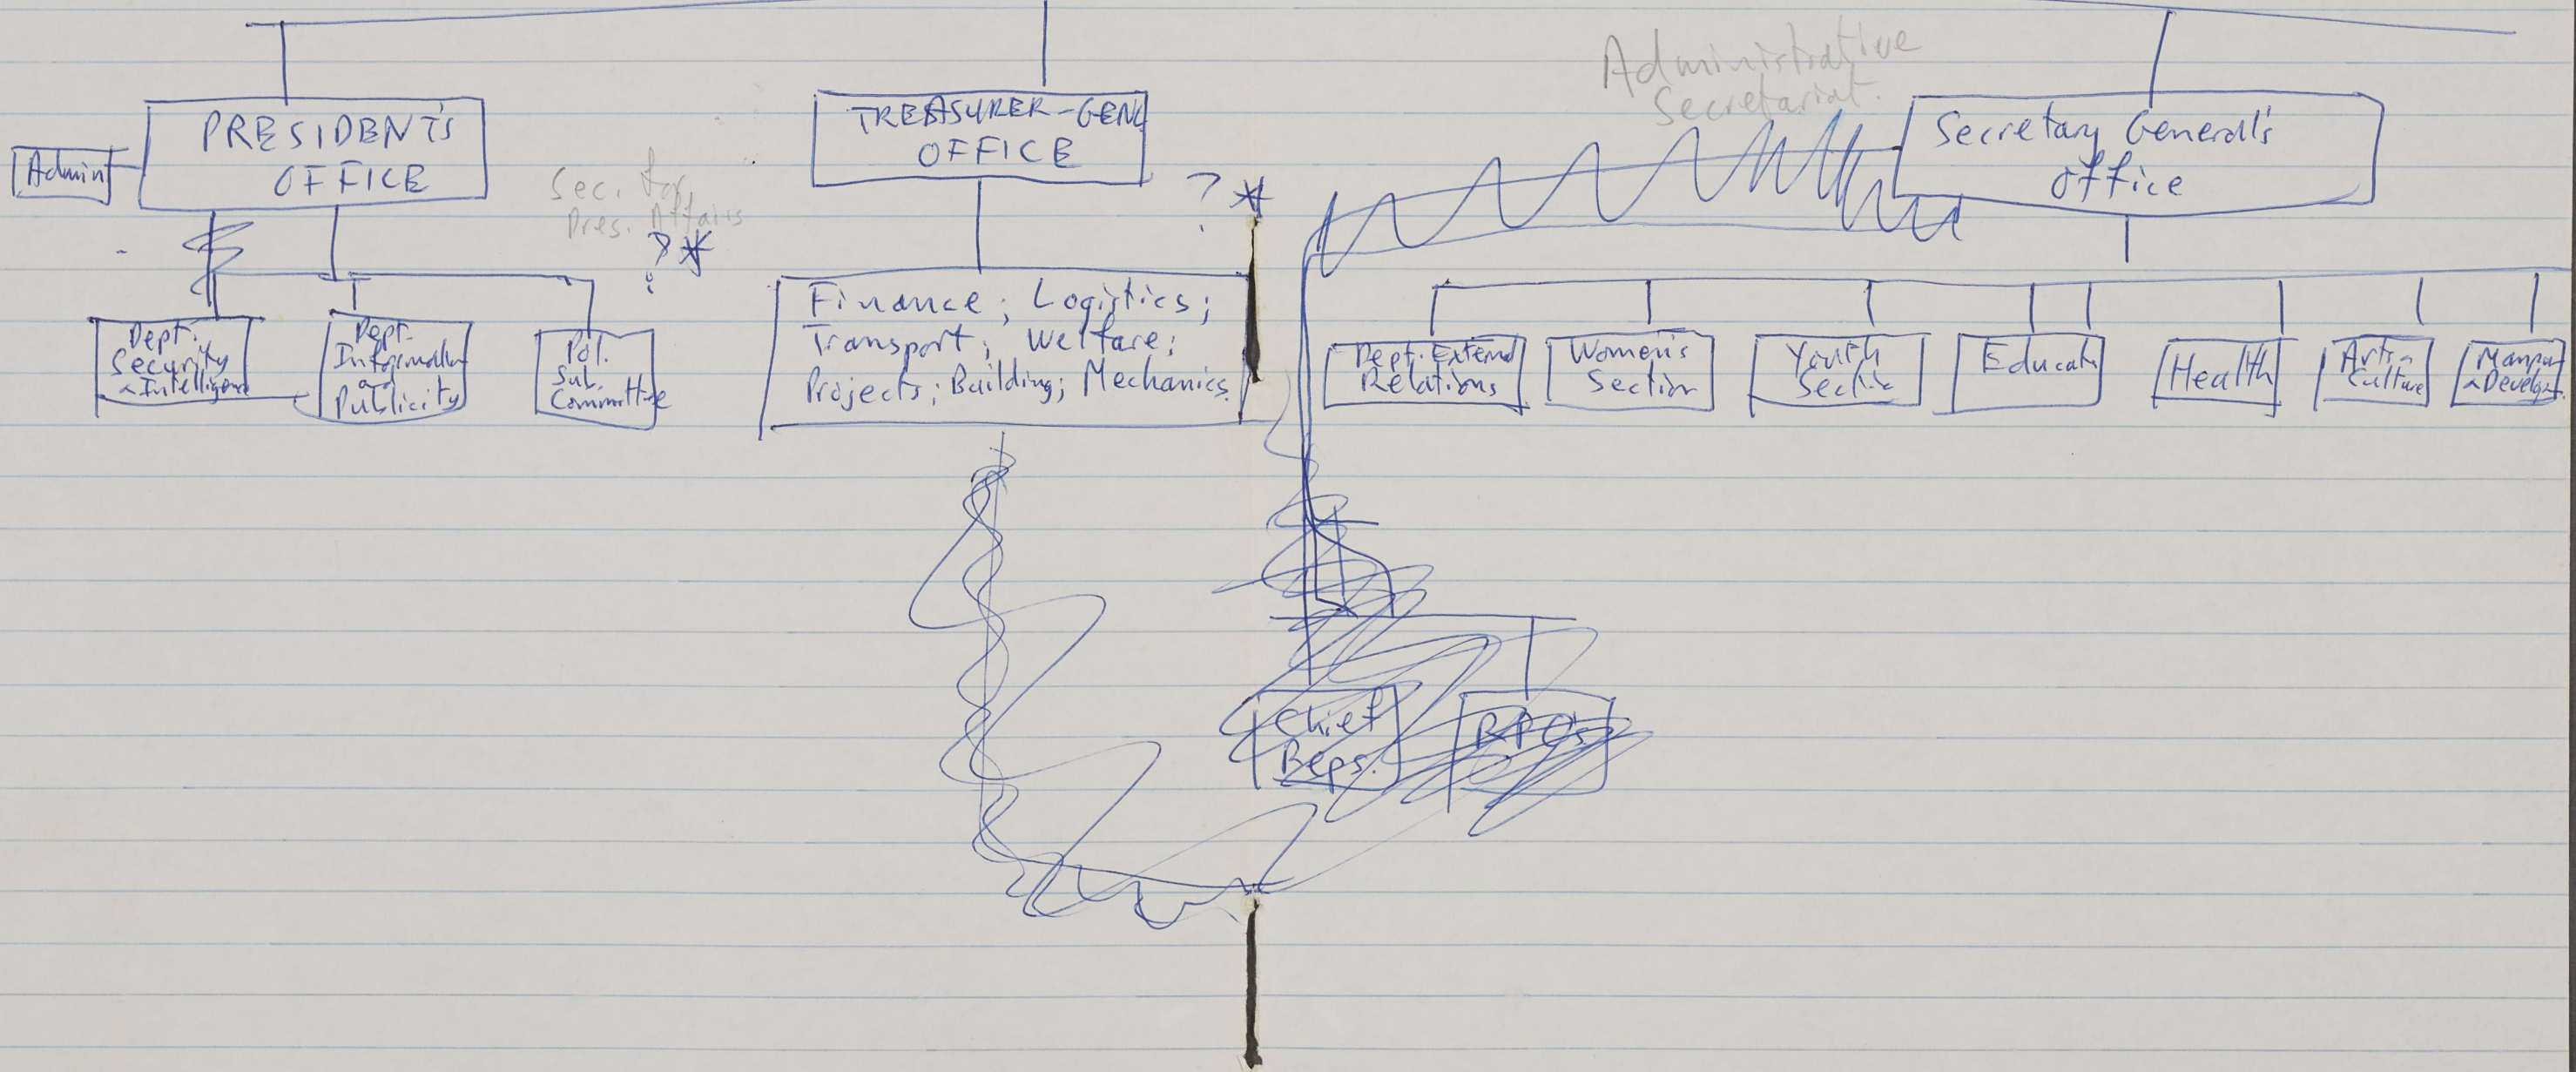 Administrative
Secretariat.
PRESIDENT'S
OFFICE
Admin
Sec. for
Pres. Affairs
? *
TREASURER-GENL
OFFICE
? *
Secretary General's
office
Dept.
Security
& Intelligence
Dept.
Information
and
Publicity
Pol.
Sub.
Committee
Finance; Logistics;
Transport; Welfare;
Projects; Building; Mechanics.
Dept. External
Relations
Women's
Section
Youth
Section
Educatn
Health
Arts &
Culture
Manpow
& Develop.
Chief
Reps.
RPC's